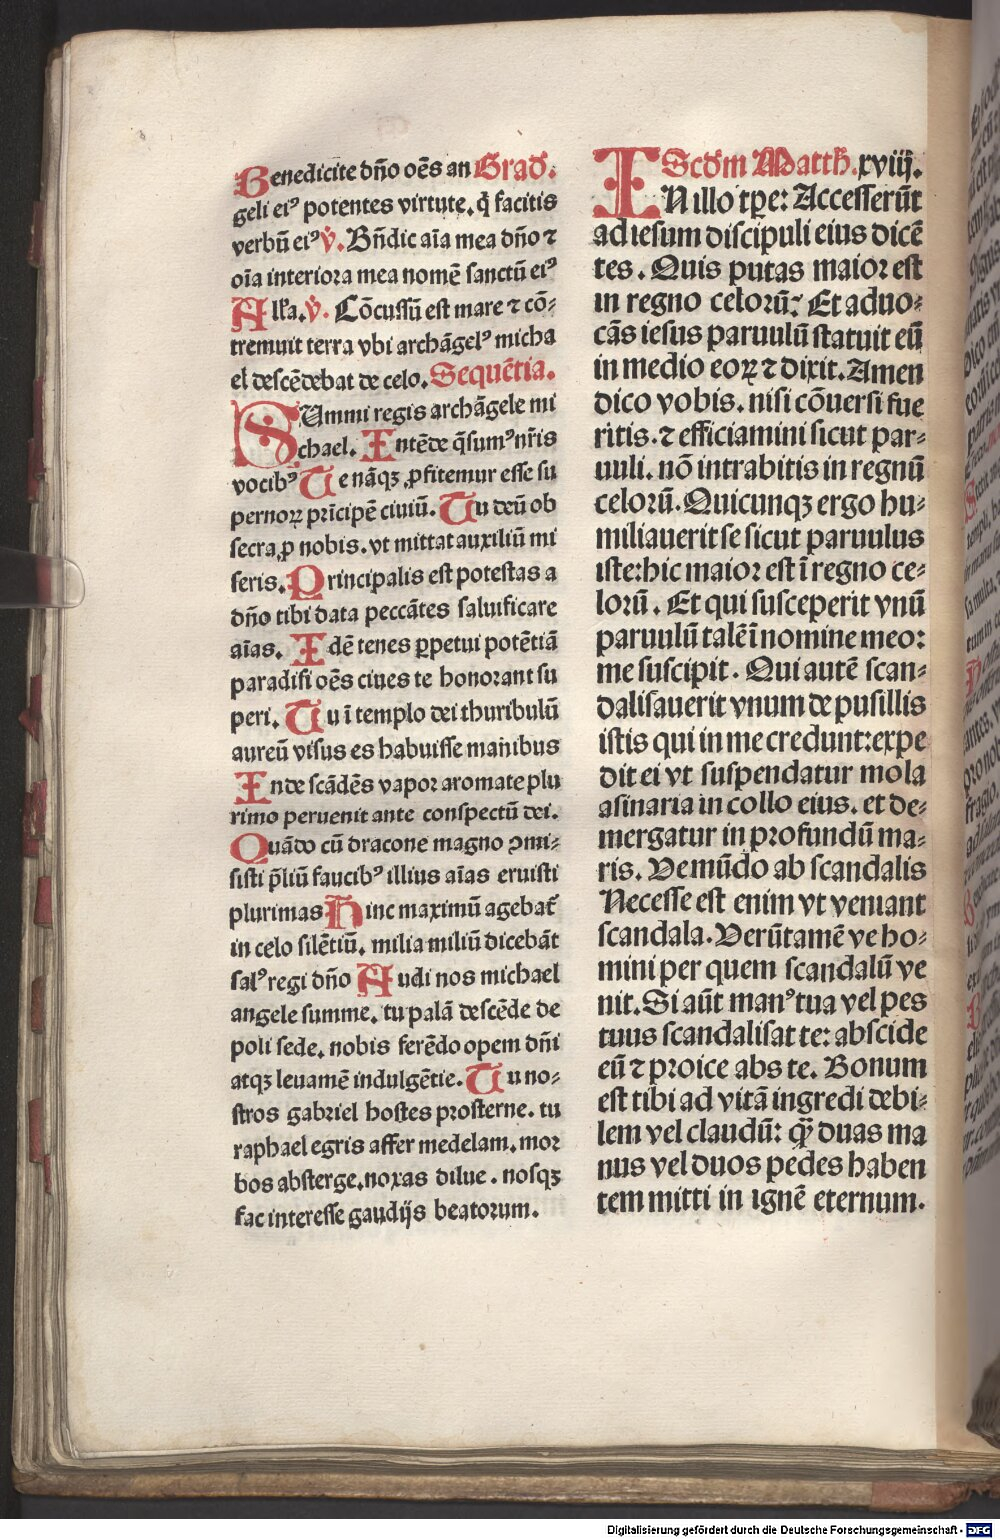 Benedicite dño oẽs an Grad̃.
geli eiꝰ potentes virtute. q̃ facitis
verbũ eiꝰ ꟟. Bñdic aĩa mea dño ⁊
oĩa interiora mea nomẽ sanctũ eiꝰ
All'a. ꟟. Cõcussũ est mare ⁊ cõ⸗
tremuit terra vbi archãgelꝰ micha
el descẽdebat de celo. Sequẽtia.
SUmmi regis archãgele mi
chael. Intẽde q̃sumꝰ nr̃is
vocibꝰ Te nãqꝫ ꝓfitemur esse su
pernoꝝ prĩcipẽ ciuiũ. Tu deũ ob
secra ꝓ nobis. vt mittat auxiliũ mi
seris. Principalis est potestas a
dño tibi data peccãtes saluificare
aĩas. Idẽ tenes ꝑpetui potẽtiã
paradisi oẽs ciues te honorant su
peri. Tu ĩ templo dei thuribulũ
aureũ visus es habuisse manibus
Inde scãdẽs vapor aromate plu
rimo peruenit ante conspectũ dei.
Quãdo cũ dracone magno ↄmi⸗
sisti p̃liũ faucibꝰ illius aĩas eruisti
plurimas Hinc maximũ agebat̃
in celo silẽtiũ. milia miliũ dicebãt
salꝰ regi dño Audi nos michael
angele summe. tu palã descẽde de
poli sede. nobis ferẽdo opem dñi
atqꝫ leuamẽ indulgẽtie. Tu no⸗
stros gabriel hostes prosterne. tu
raphael egris affer medelam. mor
bos absterge. noxas dilue. nosqꝫ
fac interesse gaudijs beatorum.
Scd̃m Matth̃. xviij.
IN illo tꝑe: Accesserũt
ad iesum discipuli eius dicẽ
tes. Quis putas maior est
in regno celorũ? Et aduo⸗
cãs iesus paruulũ statuit eũ
in medio eoꝝ ⁊ dixit. Amen
dico vobis. nisi cõuersi fue
ritis. ⁊ efficiamini sicut par⸗
uuli. nõ intrabitis in regnũ
celorũ. Quicunqꝫ ergo hu⸗
miliauerit se sicut paruulus
iste: hic maior est ĩ regno ce⸗
lorũ. Et qui susceperit vnũ
paruulũ talẽ ĩ nomine meo:
me suscipit. Qui autẽ scan⸗
dalisauerit vnum de pusillis
istis qui in me credunt: expe
dit ei vt suspendatur mola
asinaria in collo eius. et de⸗
mergatur in profundũ ma⸗
ris. Ve mũdo ab scandalis
Necesse est enim vt veniant
scandala. Verũtamẽ ve ho⸗
mini per quem scandalũ ve
nit. Si aũt manꝰ tua vel pes
tuus scandalisat te: abscide
eũ ⁊ proice abs te. Bonum
est tibi ad vitã ingredi debi⸗
lem vel claudũ: qꝫ̃ duas ma
nus vel duos pedes haben
tem mitti in ignẽ eternum.
Digitalisierung gefördert durch die Deutsche Forschungsgemeinschaft - DFG